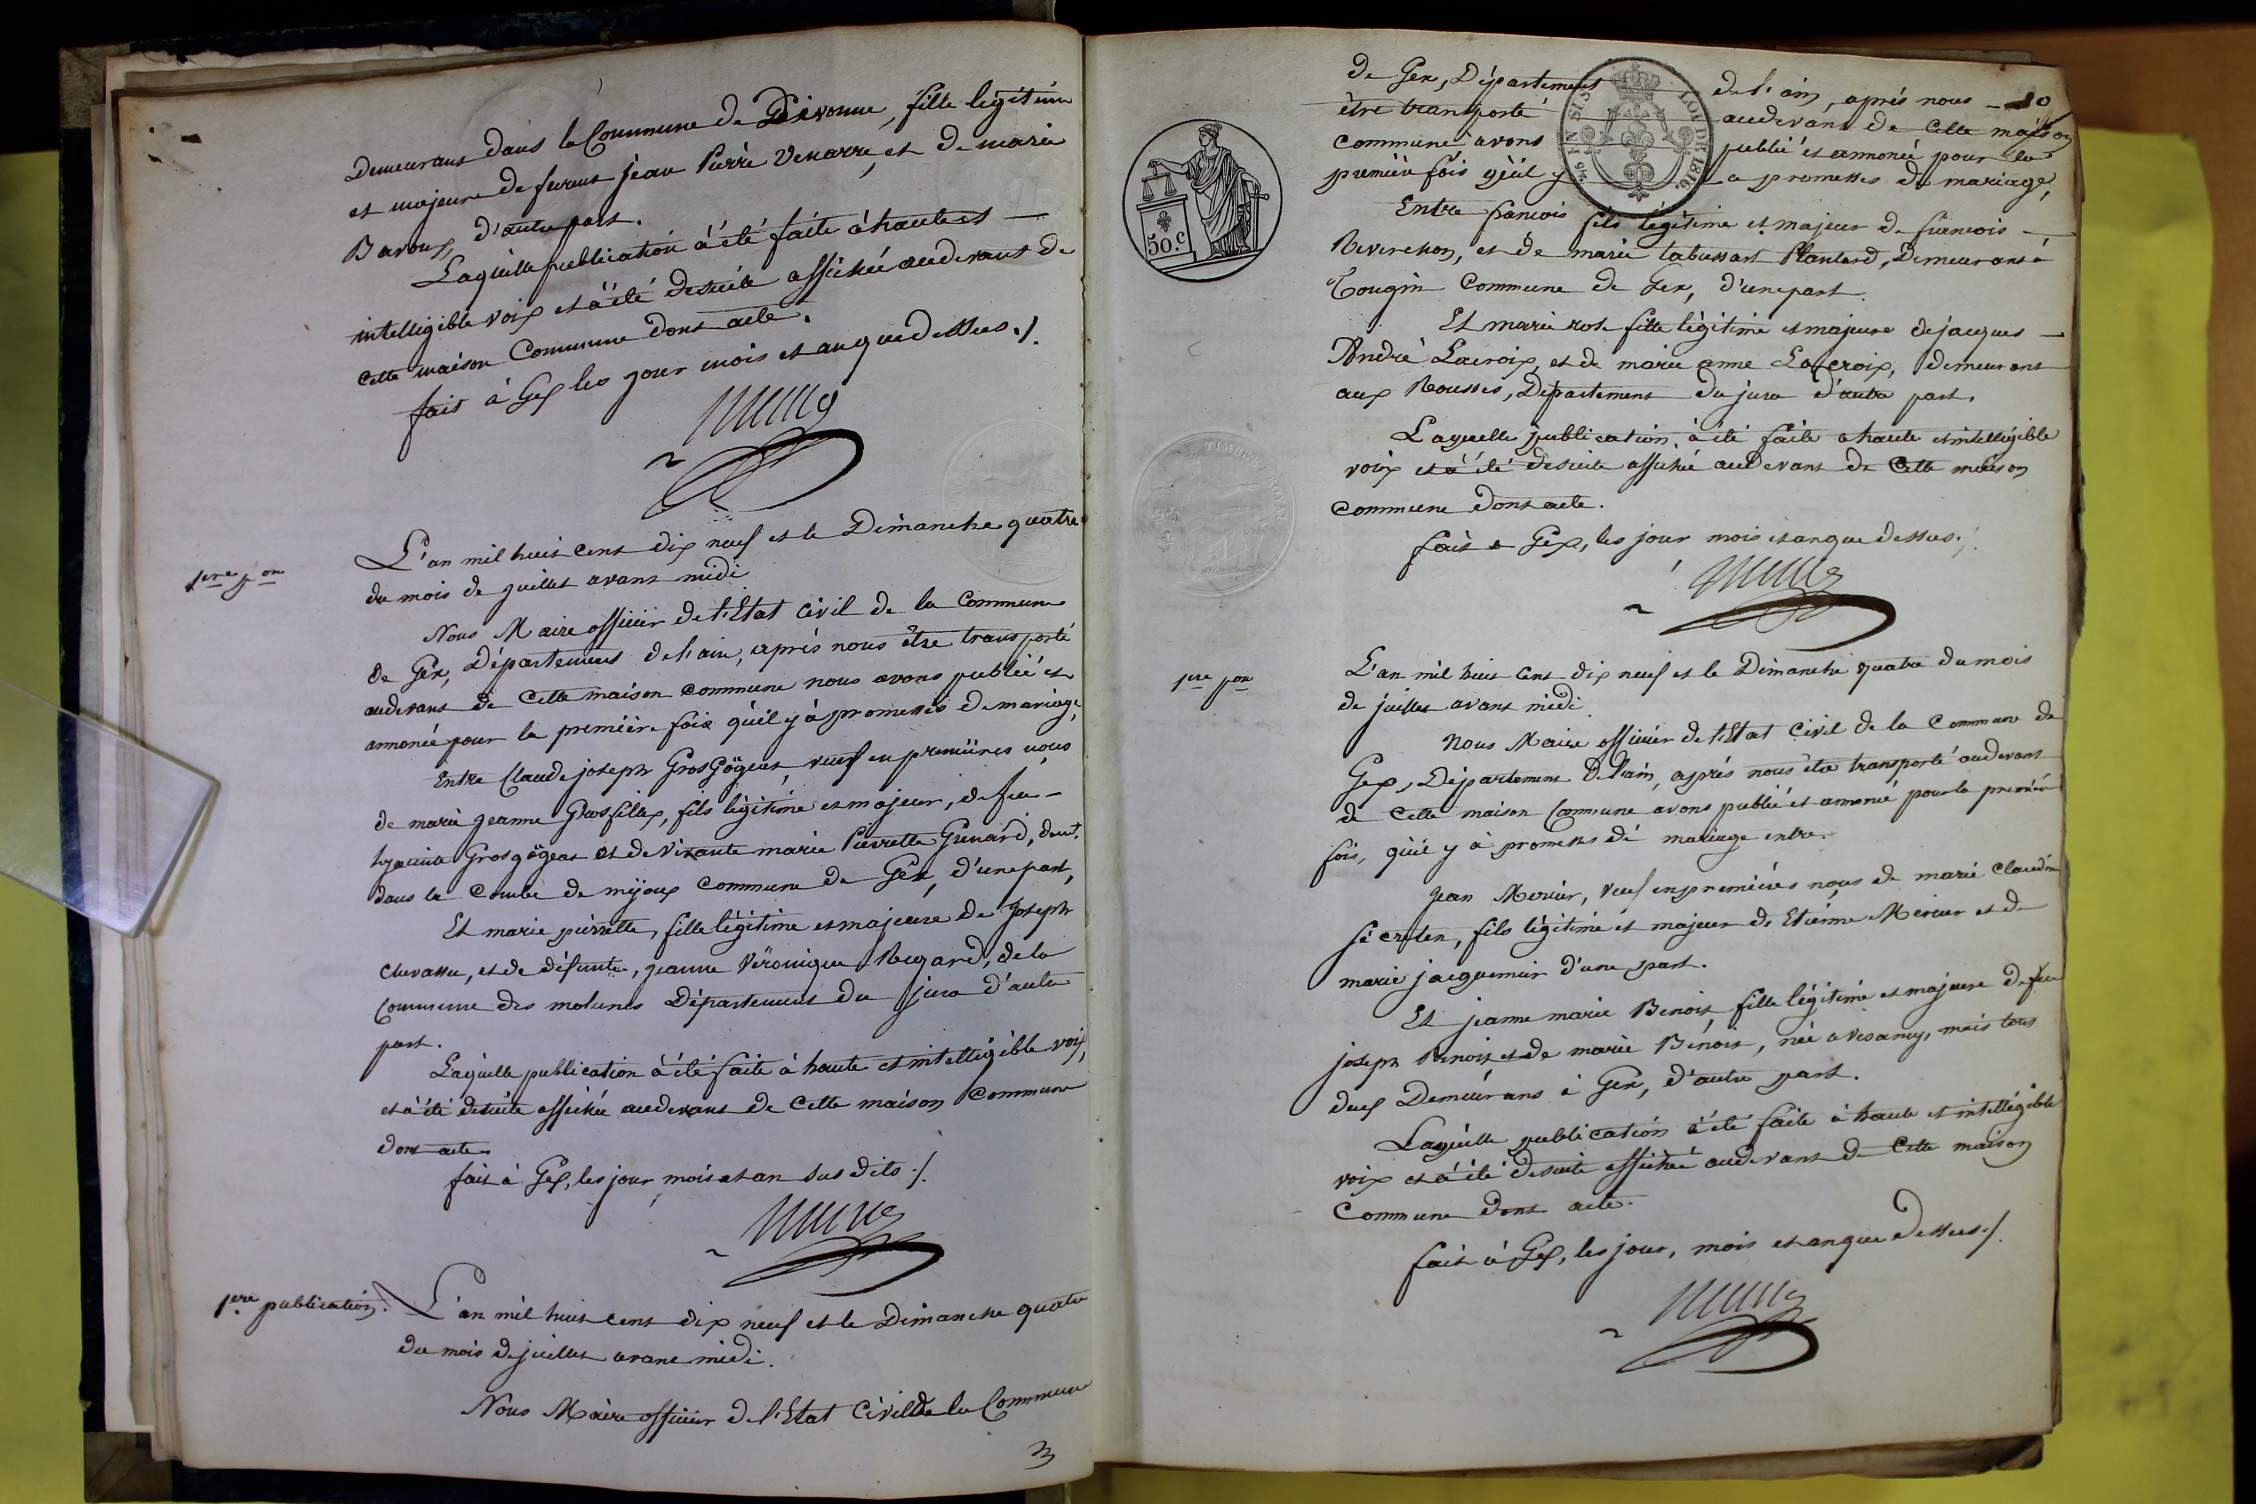 Demeurant dans la Commune de Divonne, fille légitime
et majeure de feurent jean Pierre Venarre, et de marie
Baroux, d'autre part.
Laquelle publication à été faite à haute et
intelligible voix et à été desuite affichée audevant de
cette maison Commune dont acte.
fait à Gex les jour mois et an que dessus ./.
1ere pon
L'an mil huit cent dix neuf et le Dimanche quatre
du mois de juillet avant midi
Nous Maire officier de l'Etat Civil de la Commune
de Gex, Département de l'ain, après nous être transporté
audevant de cette maison commune nous avons publié et
annoncé pour la première fois qu'il y à promesses de mariage,
Entre Claude joseph GrosGögeat, veuf en premières noces
de marie jeanne Grosfillex, fils légitime et majeur, de feu
hyacinte Grosgögeat et de vivante marie Pierrette Grenard, demt.
dans la Combe de mijoux commune de Gex, d'une part,
Et marie pierrette, fille légitime et majeure de Joseph
Chevassu, et de défunte, jeanne Véronique Regard, de la
Commune des molunes Département du jura d'autre
part.
Laquelle publication à été faite à haute et intelligible voix,
et à été desuite affichée audevant de cette maison Commune
dont acte.
fait à Gex, les jour, mois et an sus dits ./.
1ere publication.
L'an mil huit cent dix neuf et le Dimanche quatre
du mois de juillet avant midi.
Nous Maire officier de l'Etat Civil de la Commune
3
de Gex, Département de l'ain, après nous
10
être transporté audevant de cette maison
commune avons publié et annoncé pour la
première fois qu'il y a promesses de mariage,
50.c
LOI DE 1816.
Entre francois fils légitime et majeur de francois
Reverchon, et de marie tabussart Plantard, Demeurant à
Tougin Commune de Gex, d'une part.
Et marie rose fille légitime et majeure de jacques
André Lacroix, et de marie anne Lacroix, demeurant
aux Rousses, Département du jura d'autre part.
Laquelle publication à été faite a haute et intelligible
voix et à été desuite affichée audevant de Cette maison
commune dont acte.
fait a Gex, les jour mois et an que dessus ./.
1re pon
L'an mil huit cent dix neuf et le Dimanche quatre du mois
de juillet avant midi
Nous Maire officier de l'Etat Civil de la Commune de
Gex, Département de l'ain, après nous être transporté audevant
de cette maison Commune avons publié et annoncé pour la première
fois, qu'il y à promesses de mariage entre.
Jean Mercier, veuf en premières noçes de marie Claudine
Sécretan, fils légitime et majeur de Etienne Mercier et de
marie jacquemier d'une part.
Et jeanne marie Benoit, fille légitime et majeure de feu
joseph Benoit et de marie Benoit, née a Vesancy, mais tous
deux Demeurans à Gex, d'autre part.
Laquelle publication à été faite à haute et intelligible
voix et à été desuite affichée audevant de Cette maison
Commune dont acte.
fait à Gex, les jour, mois et an que dessus ./.